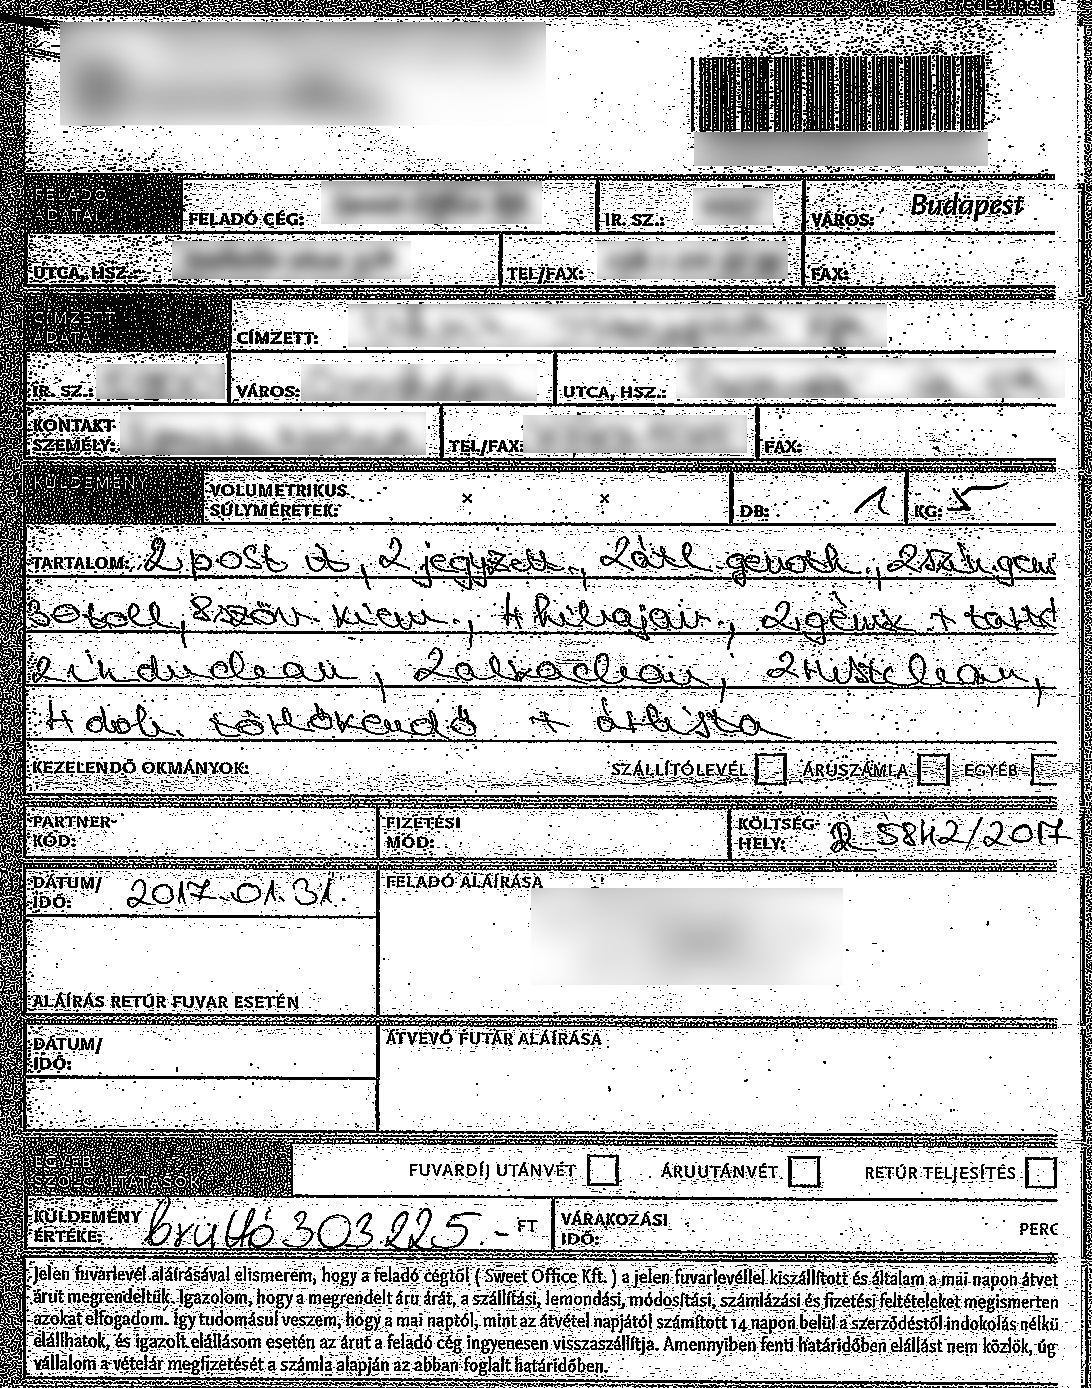 FELADÓ ADATAI
FELADÓ CÉG: IR. SZ.: VÁROS: Budapest
UTCA, HSZ.: TEL/FAX: FAX:
CÍMZETT ADATAI
CÍMZETT:
IR. SZ.: VÁROS: UTCA, HSZ.:
KONTAKT SZEMÉLY: TEL/FAX: FAX:
KÜLDEMÉNY VOLUMETRIKUS SÚLYMÉRETEK: x x DB: 1 KG: 5
TARTALOM: 2 post it, 2 jegyzett.,
30 toll, 4 hibajav., 2 gémk +
2 induclean, 2alkaclean,
4 dob. törlőkendő + árlista
KEZELENDŐ OKMÁNYOK: SZÁLLÍTÓLEVÉL ÁRUSZÁMLA EGYÉB
PARTNER- KÓD: FIZETÉSI MÓD: KÖLTSÉG- HELY: 5842/2017
DÁTUM/ IDŐ: 2017.01.31. FELADÓ ALÁÍRÁSA
ALÁÍRÁS RETÚR FUVAR ESETÉN
DÁTUM/ IDŐ: ÁTVEVŐ FUTÁR ALÁÍRÁSA
EGYÉB SZOLGÁLTATÁSOK
FUVARDÍJ UTÁNVÉT ÁRUUTÁNVÉT RETÚR TELJESÍTÉS
KÜLDEMÉNY ÉRTÉKE: bruttó 303.225.- FT VÁRAKOZÁSI IDŐ: PERC
Jelen fuvarlevél aláírásával elismerem, hogy a feladó cégtől ( Sweet Office Kft. ) a jelen fuvarlevéllel kiszállított és általam a mai napon átvet
árut megrendeltük. Igazolom, hogy a megrendelt áru árát, a szállítási, lemondási, módosítási, számlázási és fizetési feltételeket megismertem
azokat elfogadom. Így tudomásul veszem, hogy a mai naptól, mint az átvétel napjától számított 14 napon belül a szerződéstől indokolás nélkü
elállhatok, és igazolt elállásom esetén az árut a feladó cég ingyenesen visszaszállítja. Amennyiben fenti határidőben elállást nem közlök, úg
vállalom a vételár megfizetését a számla alapján az abban foglalt határidőben.